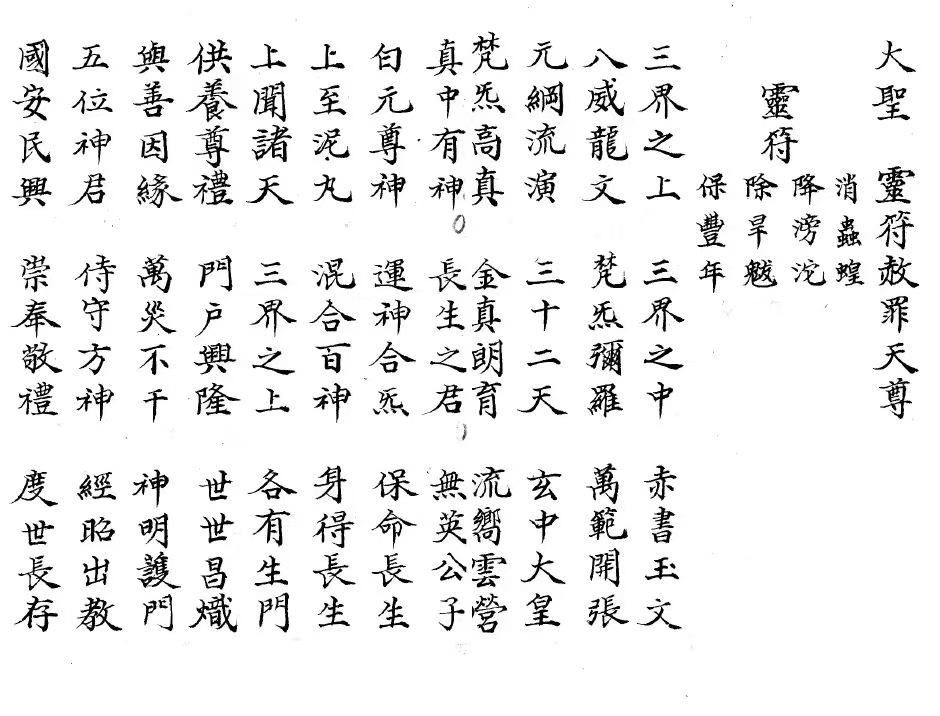 大聖 靈符赦罪天尊
靈符
消蟲蝗
降滂沱
除旱魃
保豐年
三界之上 三界之中 赤書玉文
八威龍文 梵炁彌羅 萬範開張
元綱流演 三十二天 玄中大皇
梵炁高真 金真朗育 流嚮雲營
真中有神 長生之君 無英公子
白元尊神 運神合炁 保命長生
上至泥丸 混合百神 身得長生
上聞諸天 三界之上 各有生門
供養尊禮 門戶興隆 世世昌熾
與善因緣 萬災不干 神明護門
五位神君 侍守方神 經昭出教
國安民興 崇奉敬禮 度世長存